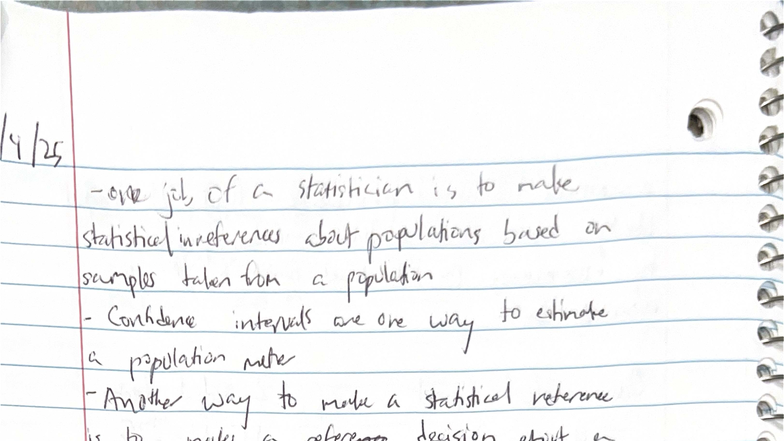 /4/25
-one job of a statistician is to make
statistical inreferences about populations based on
samples taken from a population
- Confidence intervals are one way to estimate
a population meter
-Another way to make a statistical reference
is to make a decision about a